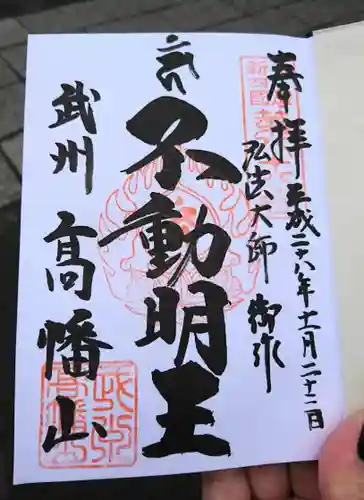 奉拝
平成二十八年十一月二十二日
弘法大師 御作
不動明王
武州 高幡山